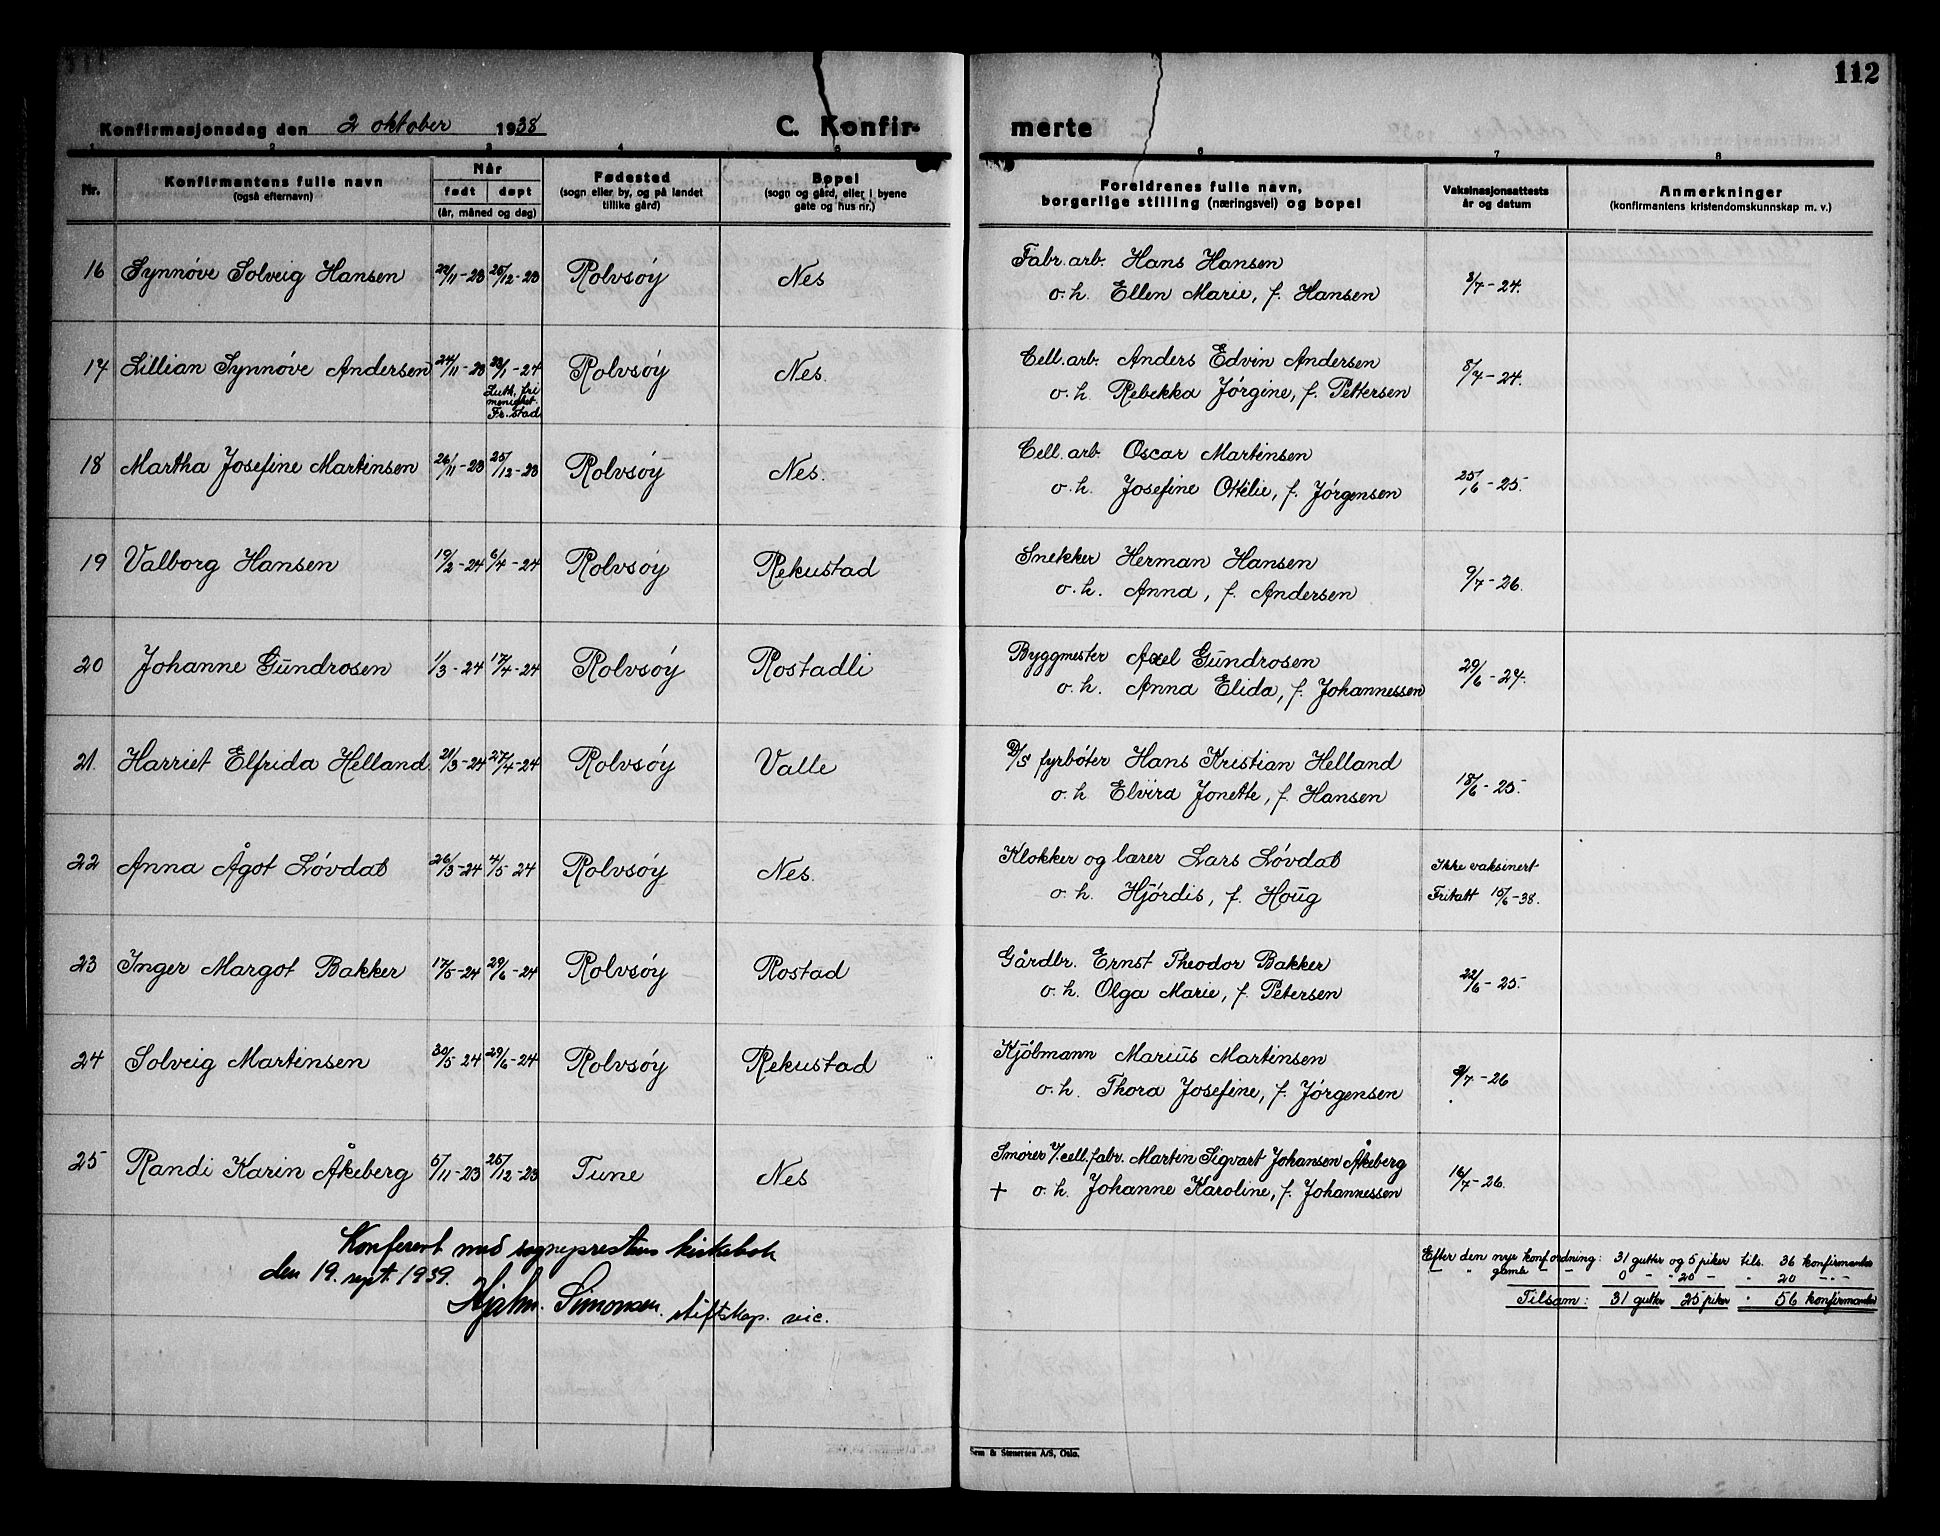 112
Konfirmasjonsdag den 2 oktober 1938
C. Konfir-merte
1 2 3 4 5 6 7 8
Nr.
Konfirmantens fulle navn
(også efternavn)
Når
født døpt
(år, måned og dag)
Fødested
(sogn eller by, og på landet
tillike gård)
Bopel
(sogn og gård, eller i byene
gate og hus nr.)
Foreldrenes fulle navn,
borgerlige stilling (næringsvei) og bopel
Vaksinasjonsattests
år og datum
Anmerkninger
(konfirmantens kristendomskunnskap m. v.)
16 Synnøve Solveig Hansen 22/11-23 26/12-23 Rolvsøy Nes Fabr. arb. Hans Hansen
o. h. Ellen Marie, f. Hansen 3/7-24.
17 Lillian Synnøve Andersen 24/11-23 20/1-24 Rolvsøy Nes. Cell. arb. Anders Edvin Andersen
Luth. fri
menighet.
Fr.stad
o. h. Rebekka Jørgine, f. Pettersen 8/7-24.
18 Martha Josefine Martinsen 26/11-23 25/12-23 Rolvsøy Nes. Cell. arb. Oscar Martinsen
o. h. Josefine Ottilie, f. Jørgensen 25/6-25.
19 Valborg Hansen 19/2-24 6/4-24 Rolvsøy Rekustad Snekker Herman Hansen
o. h. Anna, f. Andersen 9/7-26.
20 Johanne Gundrosen 1/3-24 17/4-24 Rolvsøy Rostadli Byggmester Axel Gundrosen
o. h. Anna Elida, f. Johannessen 29/6-24.
21. Harriet Elfrida Helland 21/3-24 27/4-24 Rolvsøy Valle D/S fyrbøter Hans Kristian Helland
o. h Elvira Jonette, f. Hansen 18/6-25.
22 Anna Ågot Løvdal 26/3-24 4/5-24 Rolvsøy Nes. Klokker og lærer Lars Løvdal
o. h. Hjørdis, f. Houg
Ikke vaksinert
Fritatt 15/6-38.
23 Inger Margot Bakker 17/5-24 29/6-24 Rolvsøy Rostad Gårdbr. Ernst Theodor Bakker
o. h. Olga Marie, f. Petersen 22/6-25.
24 Solveig Martinsen 30/5-24 29/6-24 Rolvsøy Rekustad Kjøbmann Marius Martinsen
o. h. Thora Josefine, f. Jørgensen 9/7-26
25 Randi Karin Åkeberg 5/11-23 26/12-23 Tune Nes Smører v/cell. fabr. Martin Sigvart Johansen Åkeberg
+ o. h. Johanne Karoline, f. Johannessen 16/7-26.
Konferert med sogneprestens kirkebok
den 19. sept. 1939.
Hjalm. Simonsen. stiftskap. vic.
Efter den nye konf.ordning: 31 gutter og 5 piker tils. 36 konfirmanter
" " gamle " - 0 " " 20 " " 20 " - "
Tilsam: 31 gutter 25 piker " 56 konfirmanter
Sem & Stenersen A/S, Oslo.